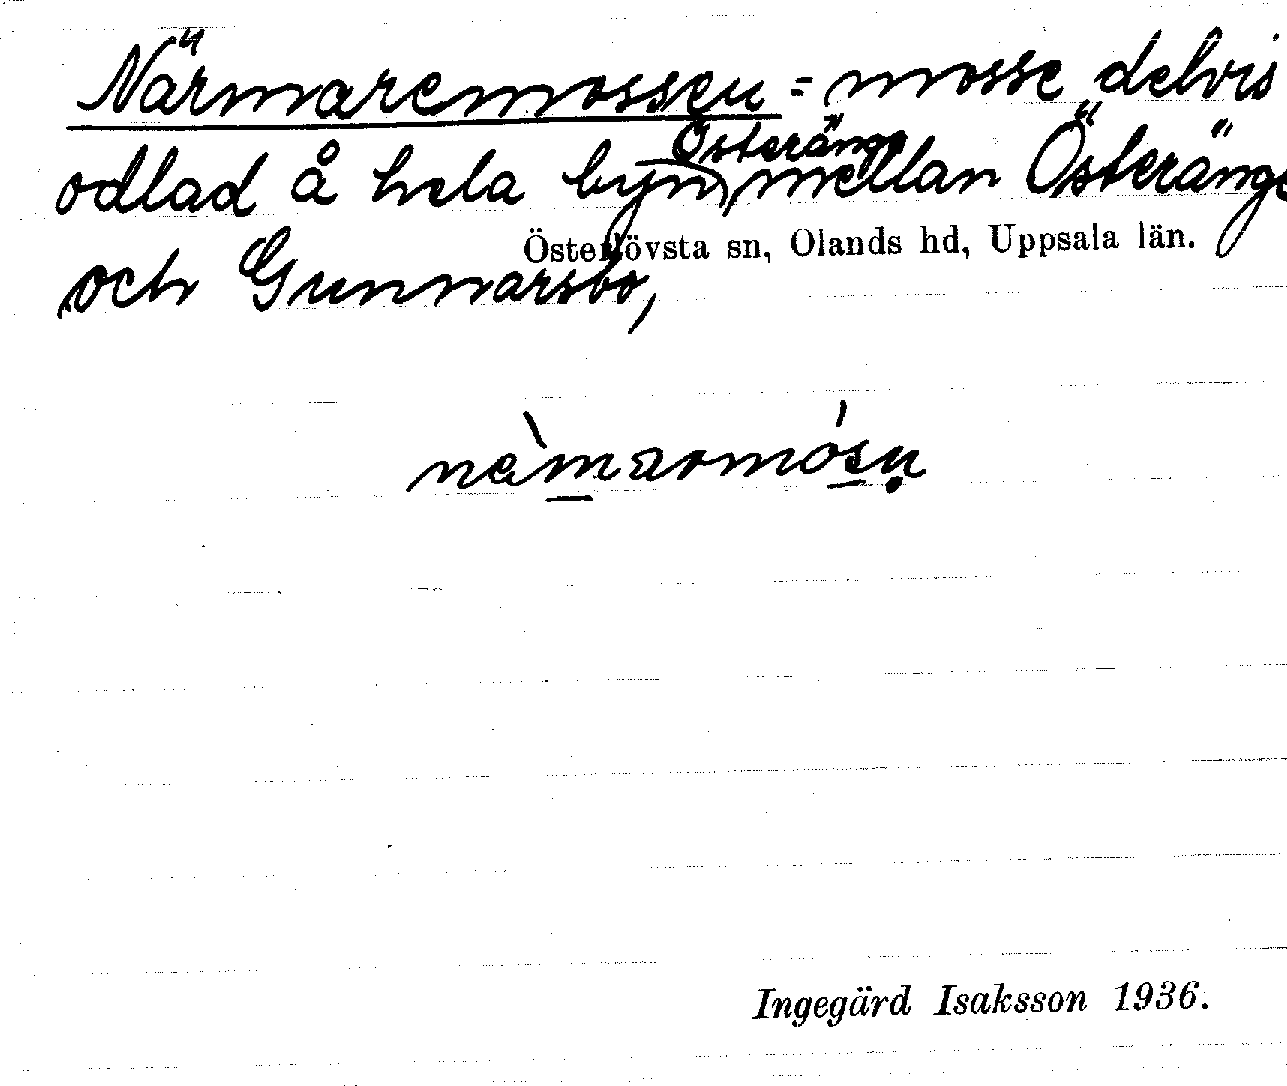 Närmaremossen = mosse delvis
odlad å hela byn Österänge, mellan Österänge
Österlövsta sn, Olands hd, Uppsala län.
och Gunnarsbo,
Ingegärd Isaksson 1936.